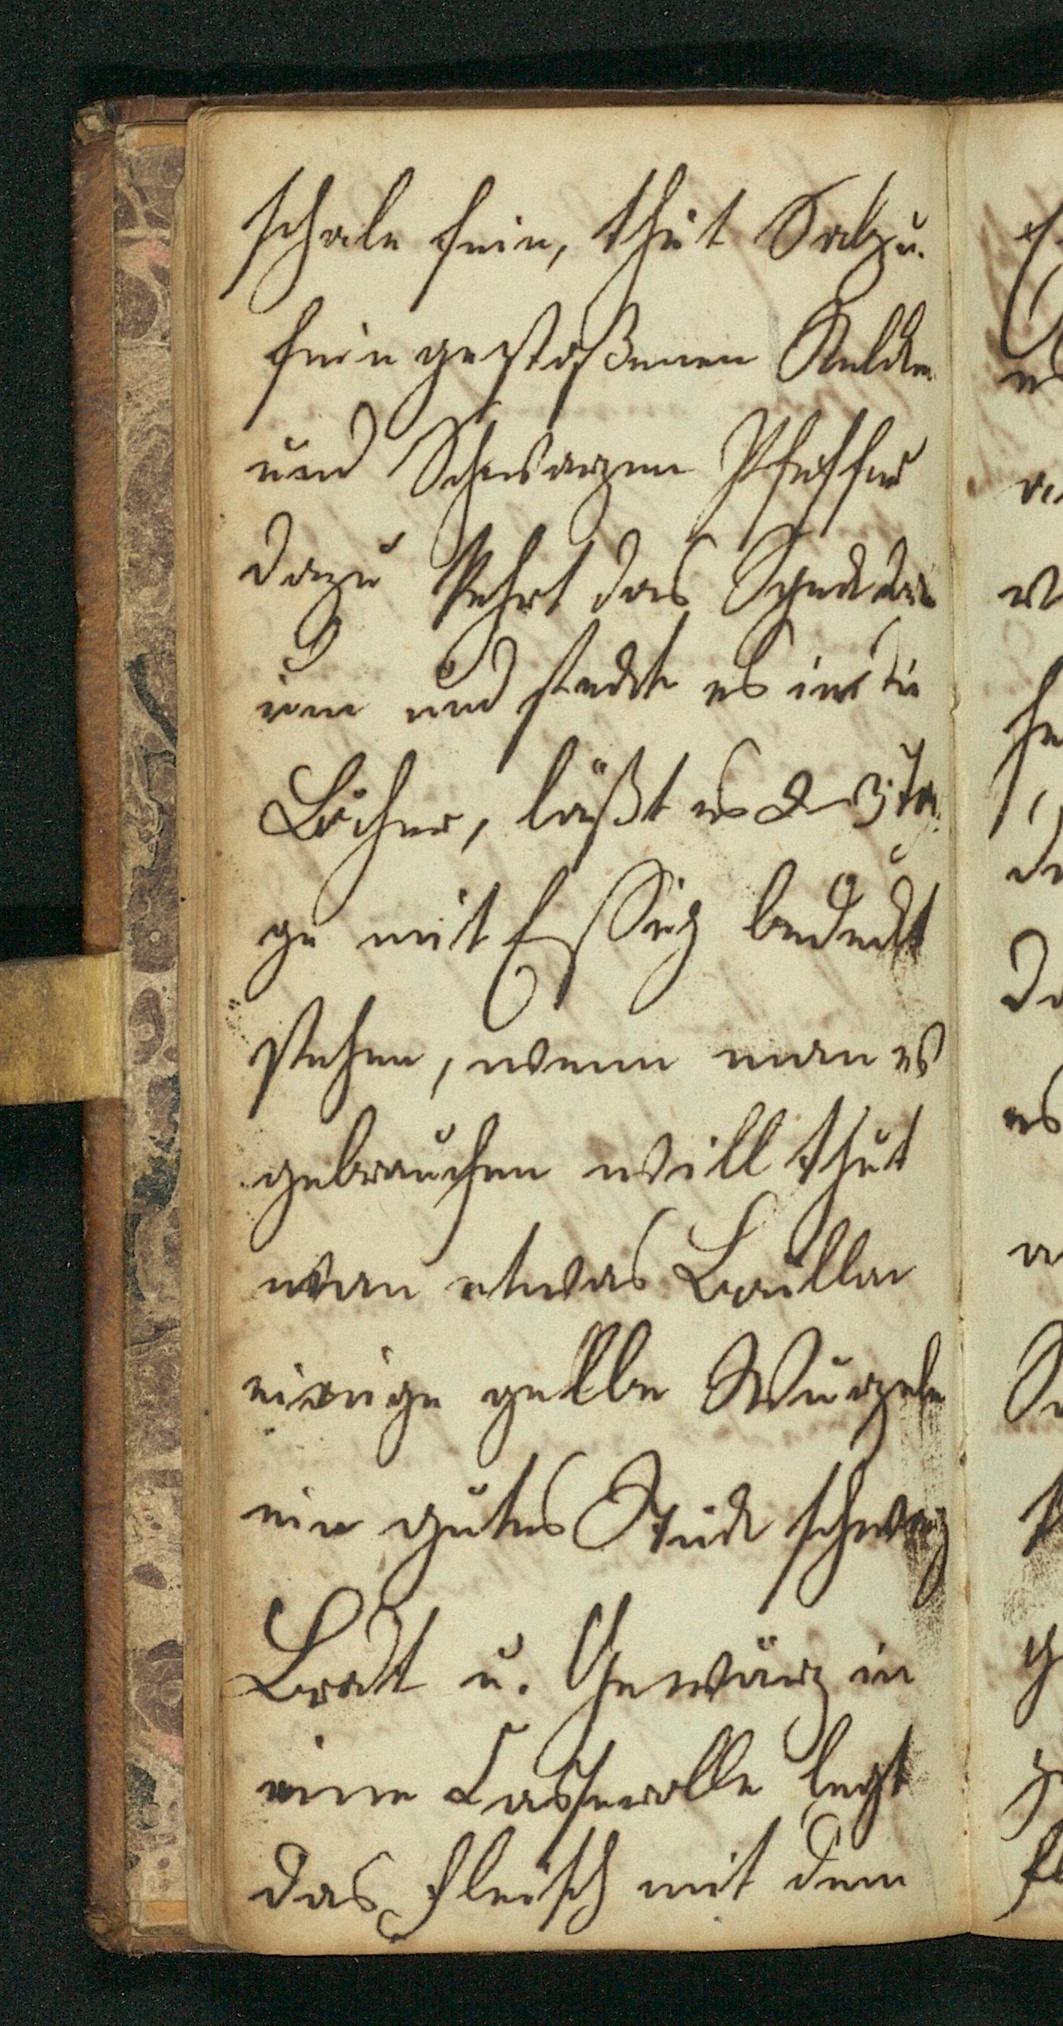 schale fein, thut Salz u.
fein gestoßenen Nelken
und Schwarzen Pfeffer
dazu kehrt das Speck dar
inn und steckt es in die
Löcher, läßt es 2-3 Ta
ge mit Essig bedeckt
stehen, wenn man es
gebrauchen will thut
man etwas Boullon
einige gelbe Wurzeln
ein gutes Stück schwarz
Brodt u. Gewürz in
eine Casserolle legt
das Fleisch mit dem